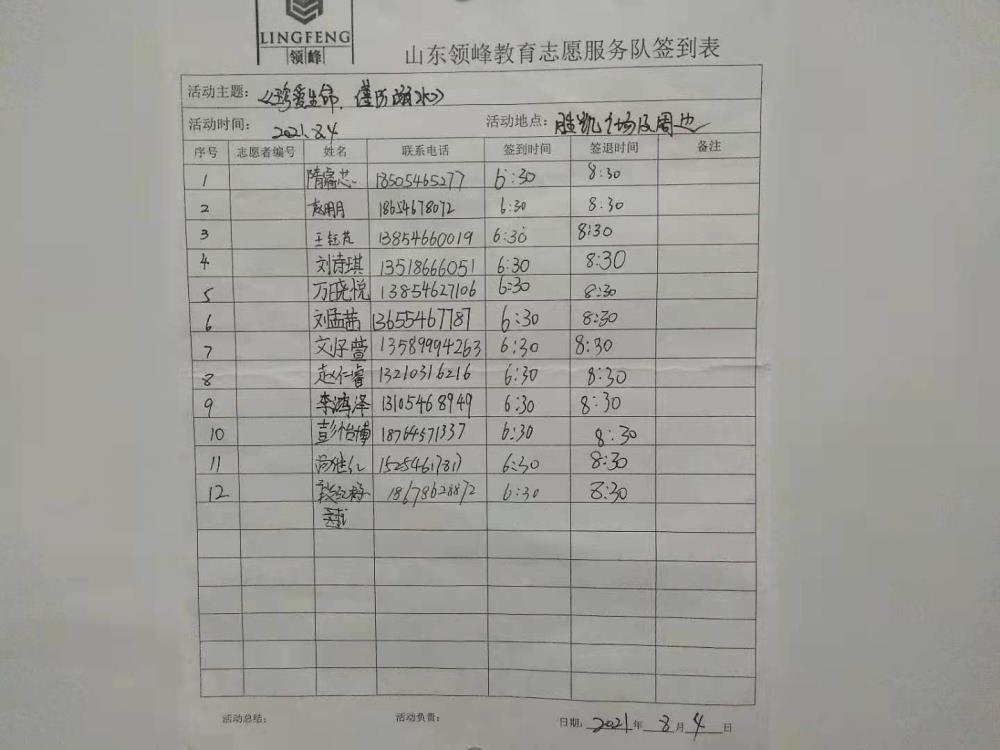 LINGFENG
领峰
山东领峰教育志愿服务队签到表
活动主题：《珍爱生命，谨防溺水》
活动时间：2021.8.4 活动地点：胜凯广场及周边
序号 志愿者编号 姓名 联系电话 签到时间 签退时间 备注
1 隋睿芯 18505465277 6:30 8:30
2 赵明月 18654678072 6:30 8:30
3 王钰茂 13854660019 6:30 8:30
4 刘诗琪 13518666051 6:30 8:30
5 万晓悦 13854627106 6:30 8:30
6 刘孟茜 13655467787 6:30 8:30
7 文仔萱 13589994263 6:30 8:30
8 赵仁睿 13210316216 6:30 8:30
9 李鸿泽 13105468949 6:30 8:30
10 彭怡博 18764571337 6:30 8:30
11 15254617817 6:30 8:30
12 18678628872 6:30 8:30
活动总结： 活动负责： 日期：2021年8月4日